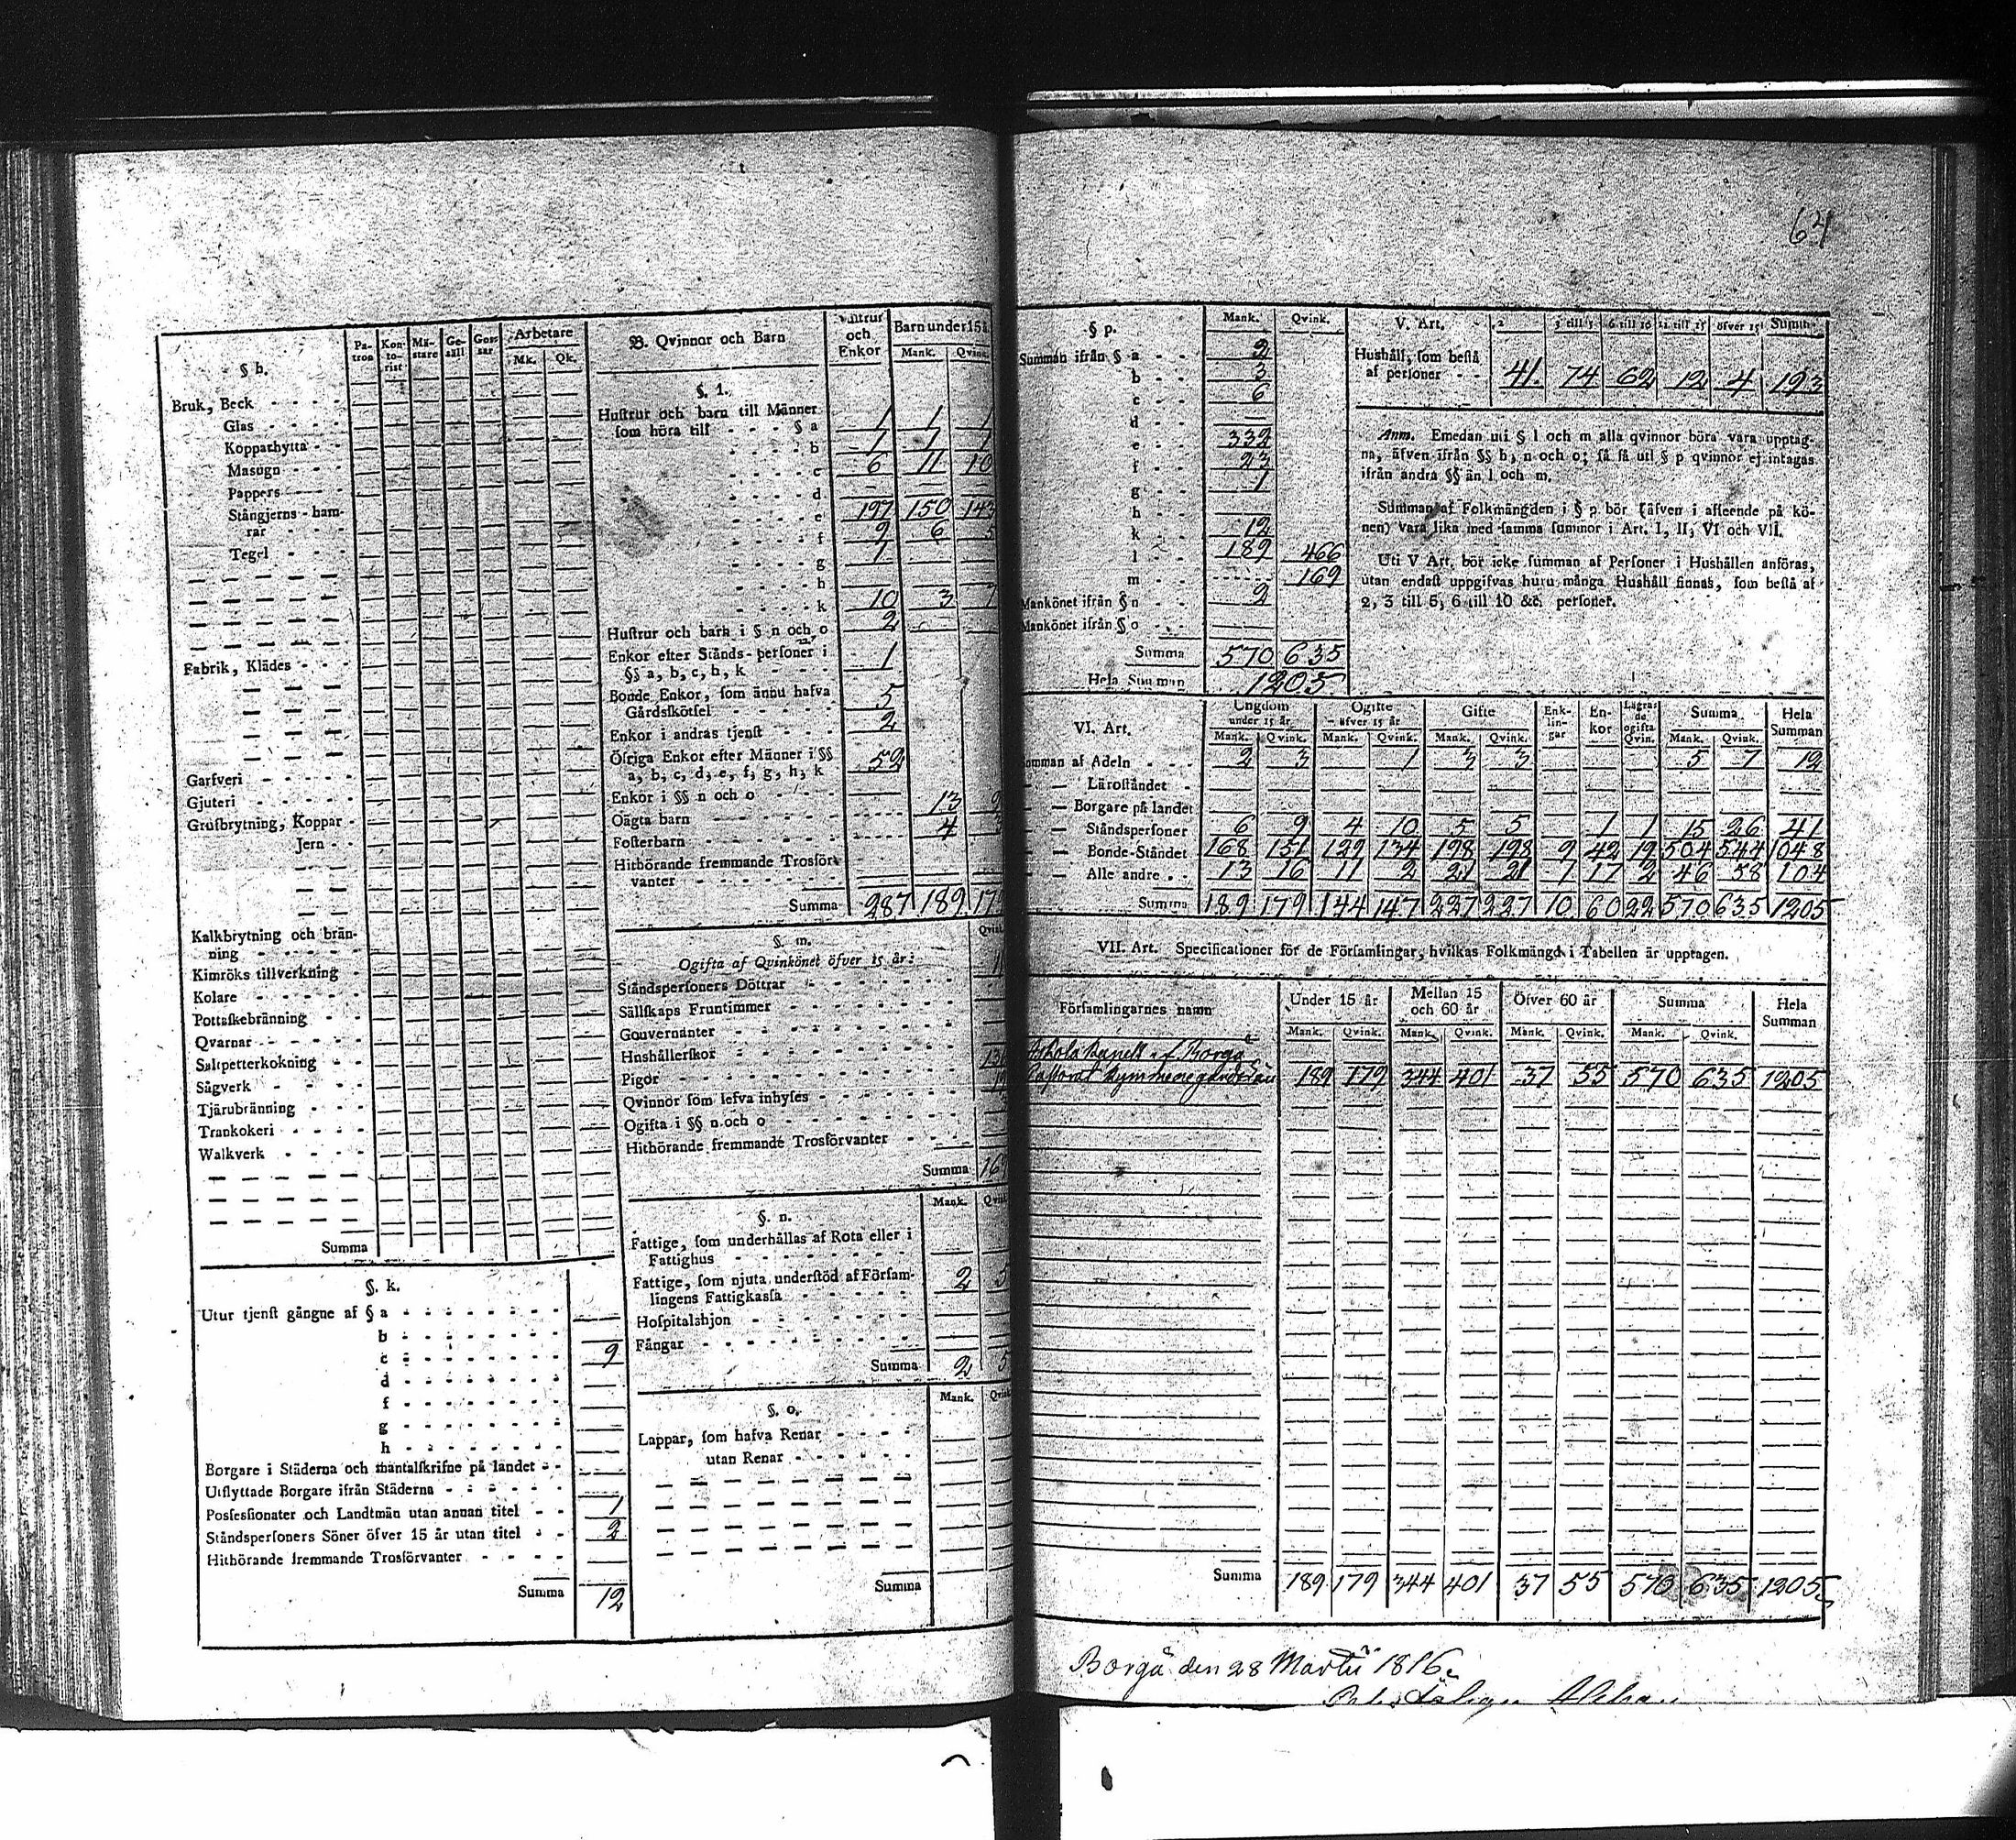 64
§ h. Pa-tron Kon-to-rist Mä-stare Ge-säll Gos-sar Arbetare Mk. Qk.
Bruk, Beck
Glas
Kopparhytta
Masugn
Pappers
Stångjerns-ham-
rar
Tegel
Fabrik, Klädes
Garfveri
Gjuteri
Grufbrytning, Koppar
Jern
Kalkbrytning och brän-
ning
Kimröks tillverkning
Kolare
Pottaskebränning
Qvarnar
Saltpetterkokning
Sågverk
Tjärubränning
Trankokeri
Walkverk
Summa
§. k.
Utur tjenst gångne af § a
b
c 9
d
f
g
h
Borgare i Städerna och mantalskrifne på landet
Utflyttade Borgare ifrån Städerna
Possessionater och Landtmän utan annan titel 1
Ståndspersoners Söner öfver 15 år utan titel 2
Hithörande fremmande Trosförvanter
Summa 12
B. Qvinnor och Barn
och Enkor Barn under 15 Mank.
§. l.
Hustrur och barn till Männer
som höra till § a 1 1 1
b 1 1 1
c 6 11 10
d
e 197 150 143
f 9 6 5
g 1
h
k 10 3 7
Hustrur och barn i § n och o 2
Enkor efter Stånds-personer i
§§ a, b, c, h, k 1
Bonde Enkor, som ännu hafva
Gårdsskötsel 5
Enkor i andras tjenst 2
Öfriga Enkor efter Männer i §§
a, b, c, d, e, f, g, h, k 52
Enkor i §§ n och o
Oägta barn 13 9
Fosterbarn 4 3
Hithörande fremmande Trosför-
vanter
Summa 287 189
§. m.
Ogifta af Qvinkönet öfver 15 år:
Ståndspersoners Döttrar
Sällskaps Fruntimmer
Gouvernanter
Hushållerskor
Pigor
Qvinnor som lefva inhyses
Ogifta i §§ n och o
Hithörande fremmande Trosförvanter
Summa
§. n. Mank.
Fattige, som underhållas af Rota eller i
Fattighus
Fattige, som njuta understöd af Försam-
lingens Fattigkassa 2 5
Hospitalshjon
Fångar
Summa 2 5
§. o. Mank.
Lappar, som hafva Renar
utan Renar
Summa
§ p. Mank. Qvink.
Summan ifrån § a 2
b 3
c 6
d
e 332
f 23
g 1
h
k 12
l 189 466
m 169
Mankönet ifrån § n 2
Mankönet ifrån § o
Summa 570 635
Hela Summan 1205
V. Art. 2 3 till 5 6 till 10 11 till 15 öfver 15 Summa
Hushåll, som bestå
af personer 41 74 62 12 4 193
Anm. Emedan uti § l och m alla qvinnor böra vara upptag-
na, äfven ifrån §§ h, n och o; så få uti § p qvinnor ej intagas
ifrån andra §§ än l och m.
Summan af Folkmängden i § p bör (äfven i afseende på kö-
nen) vara lika med samma summor i Art. I, II, VI och VII.
Uti V Art. bör icke summan af Personer i Hushållen anföras,
utan endast uppgifvas huru många Hushåll finnas, som bestå af
2, 3 till 5, 6 till 10 &c. personer.
VI. Art. Ungdom under 15 år Ogifte öfver 15 år Gifte Enk-lin-gar En-kor Lägrade ogifta Qvin. Summa Hela Summan
Mank. Qvink. Mank. Qvink. Mank. Qvink. Mank. Qvink.
Summan af Adeln 2 3 1 3 3 5 7 12
Läroståndet
Borgare på landet
Ståndspersoner 6 9 4 10 5 5 1 1 15 26 41
Bonde-Ståndet 168 151 129 134 198 198 9 42 19 504 544 1048
Alle andre 13 16 11 2 21 21 1 17 2 46 58 104
Summa 189 179 144 147 227 227 10 60 22 570 635 1205
VII. Art. Specificationer för de Församlingar, hvilkas Folkmängd i Tabellen är upptagen.
Församlingarnes namn Under 15 år Mellan 15 och 60 år Öfver 60 år Summa Hela Summan
Mank. Qvink. Mank. Qvink. Mank. Qvink. Mank. Qvink.
Askola Kapell af Borgå
Pastorat Kymmenegårds Län 189 179 344 401 37 55 570 635 1205
Summa 189 179 344 401 37 55 570 635 1205
Borgå den 28 Martii 1816.